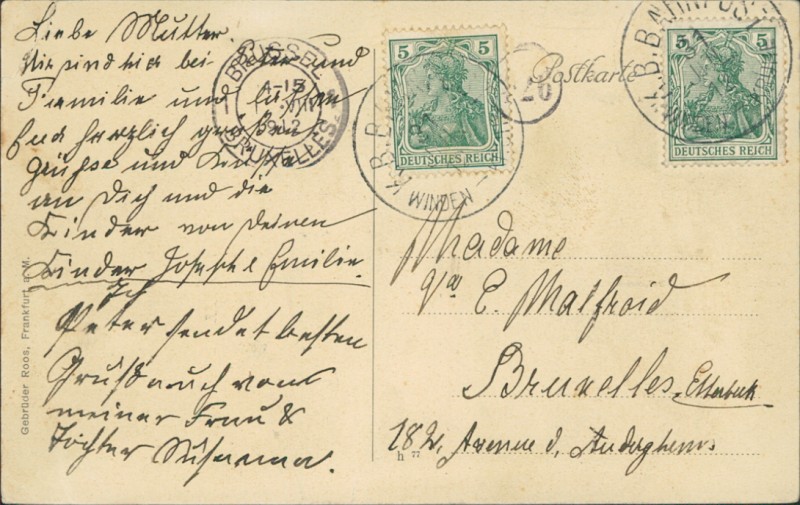 Liebe Mutter.
Wir sind hier bei Peter und
Familie und lassen
Euch herzlich grüßen
Grüsse und Küsse
an Dich und die
Kinder von Deinen
Kinder Joseph & Emilie
Peter sendet besten
Gruß auch von
meiner Frau &
Tochter Susanna.
Gebrüder Roos, Frankfurt a. M.
BRÜSSEL
BRUXELLES
5 5
DEUTSCHES REICH
K.B.BAHNPOST
WINDEN
Postkarte
5 5
DEUTSCHES REICH
K.B.BAHNPOST
WINDEN
Madame
E. Malfroid
Bruxelles, Etterbeek
182, Avenue d, Auderghem
h 77